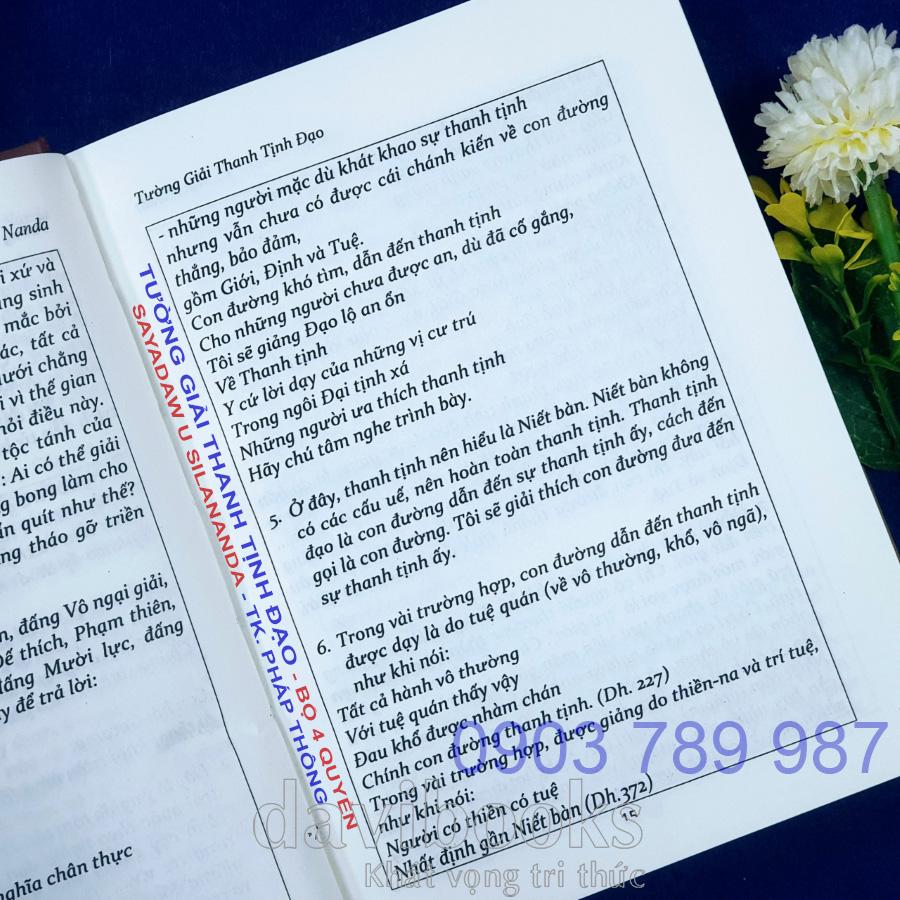 Nanda
i xứ và
ng sinh
mắc bởi
ác, tất cả
lưới chằng
i vì thế gian
hỏi điều này.
tộc tánh của
: Ai có thể giải
g bong làm cho
ấn quít như thế?
ng tháo gỡ triền
n, đấng Vô ngại giải,
Đế thích, Phạm thiên,
đấng Mười lực, đấng
y để trả lời:
nghĩa chân thực
Tường Giải Thanh Tịnh Đạo
- những người mặc dù khát khao sự thanh tịnh
nhưng vẫn chưa có được cái chánh kiến về con đường
thẳng, bảo đảm,
gồm Giới, Định và Tuệ.
Con đường khó tìm, dẫn đến thanh tịnh
Cho những người chưa được an, dù đã cố gắng,
Tôi sẽ giảng Đạo lộ an ổn
Về Thanh tịnh
Y cứ lời dạy của những vị cư trú
Trong ngôi Đại tịnh xá
Những người ưa thích thanh tịnh
Hãy chú tâm nghe trình bày.
5. Ở đây, thanh tịnh nên hiểu là Niết bàn. Niết bàn không
có các cấu uế, nên hoàn toàn thanh tịnh. Thanh tịnh
đạo là con đường dẫn đến sự thanh tịnh ấy, cách đến
gọi là con đường. Tôi sẽ giải thích con đường đưa đến
sự thanh tịnh ấy.
6. Trong vài trường hợp, con đường dẫn đến thanh tịnh
được dạy là do tuệ quán (về vô thường, khổ, vô ngã),
như khi nói:
Tất cả hành vô thường
Với tuệ quán thấy vậy
Đau khổ được nhàm chán
Chính con đường thanh tịnh. (Dh. 227)
Trong vài trường hợp, được giảng do thiền-na và trí tuệ,
như khi nói:
Người có thiền có tuệ
Nhất định gần Niết bàn (Dh.372)
15
TƯỜNG GIẢI THANH TỊNH ĐẠO - BỘ 4 QUYỂN
SAYADAW U SILANANDA - TK. PHÁP THÔNG
0903 789 987
davibooks
Khát vọng tri thức